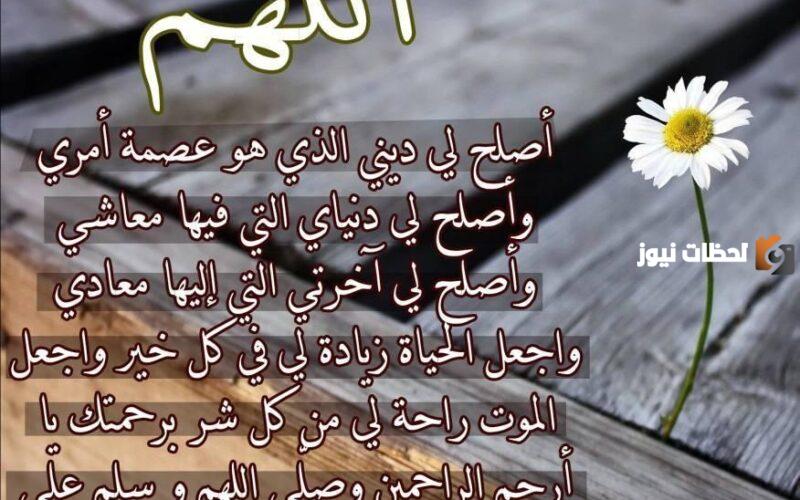 اللهم
أصلح لي ديني الذي هو عصمة أمري
وأصلح لي دنياي التي فيها معاشي
وأصلح لي آخرتي التي إليها معادي
واجعل الحياة زيادة لي في كل خير واجعل
الموت راحة لي من كل شر برحمتك يا
أرحم الراحمين وصلّى اللهم و سلم على
لحظات نيوز